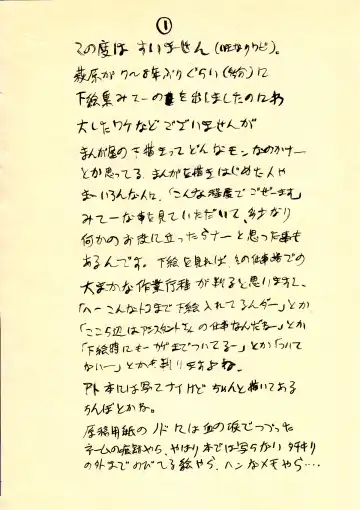 ①
この度は すいません(いきなりワビ)。
萩原が7〜8年ぶりぐらい(多分)に
下絵集みてーの を出しましたのにわ
大したワケなどございませんが
まんが屋の下描きってどんなモンなのかナー
とか思ってる、まんがを描きはじめた人や
まーいろんな人に、「こんな程度でござーます」
みてーな事を見ていただいて、多少なり
何かのお役に立ったらナーと思った事も
あるんです。下絵を見れば、その仕事場での
大まかな作業行程が判ると思いますし、
「へーこんなトコまで下絵入れてるんダー」とか
「ここら辺はアシスタントさんの仕事なんだなー」とか
「下絵時にもーが まで ついてるー」とか「ついて
ないー」とかも判りますよね。
アト 本には写ってナイけど ちゃんと描いてある
ちんぽとかね。
原稿用紙のノドには血の涙でつづった
ネームの痕跡やら、やはり本では写らない タチキリ
の外までのびてる絵やら、ヘンなメモやら‥‥